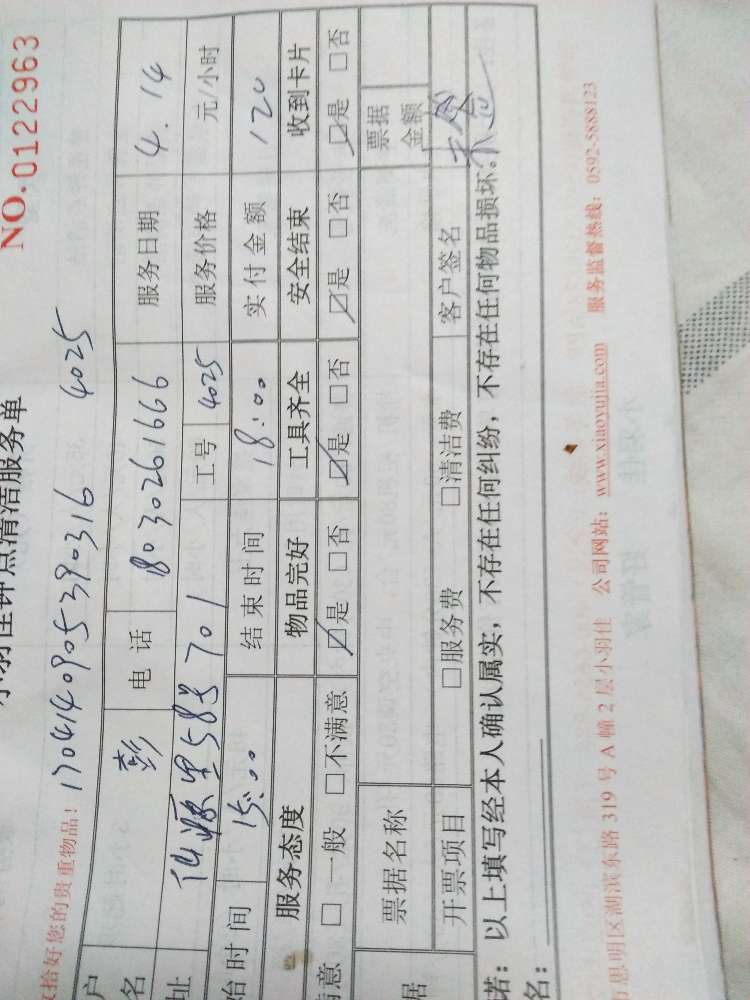 小羽佳钟点清洁服务单
NO.0122963
收拾好您的贵重物品! 17041409053790316 4025
户名 彭 电话 18030261666 服务日期 4.14
址 583 701 工号 4025 服务价格 元/小时
始时间 15:00 结束时间 18:00 实付金额 120
服务态度 物品完好 工具齐全 安全结束 收到卡片
满意 □ 一般 □不满意 ☑是 □否 ☑是 □否 ☑是 □否 ☑是 □否
据 票据名称 票据金额
开票项目 □服务费 □清洁费 客户签名
诺: 以上填写经本人确认属实,不存在任何纠纷,不存在任何物品损坏。
名:
思明区湖滨东路 319 号 A 幢 2 层小羽佳 公司网站: www.xiaoyujia.com 服务监督热线: 0592-5888123